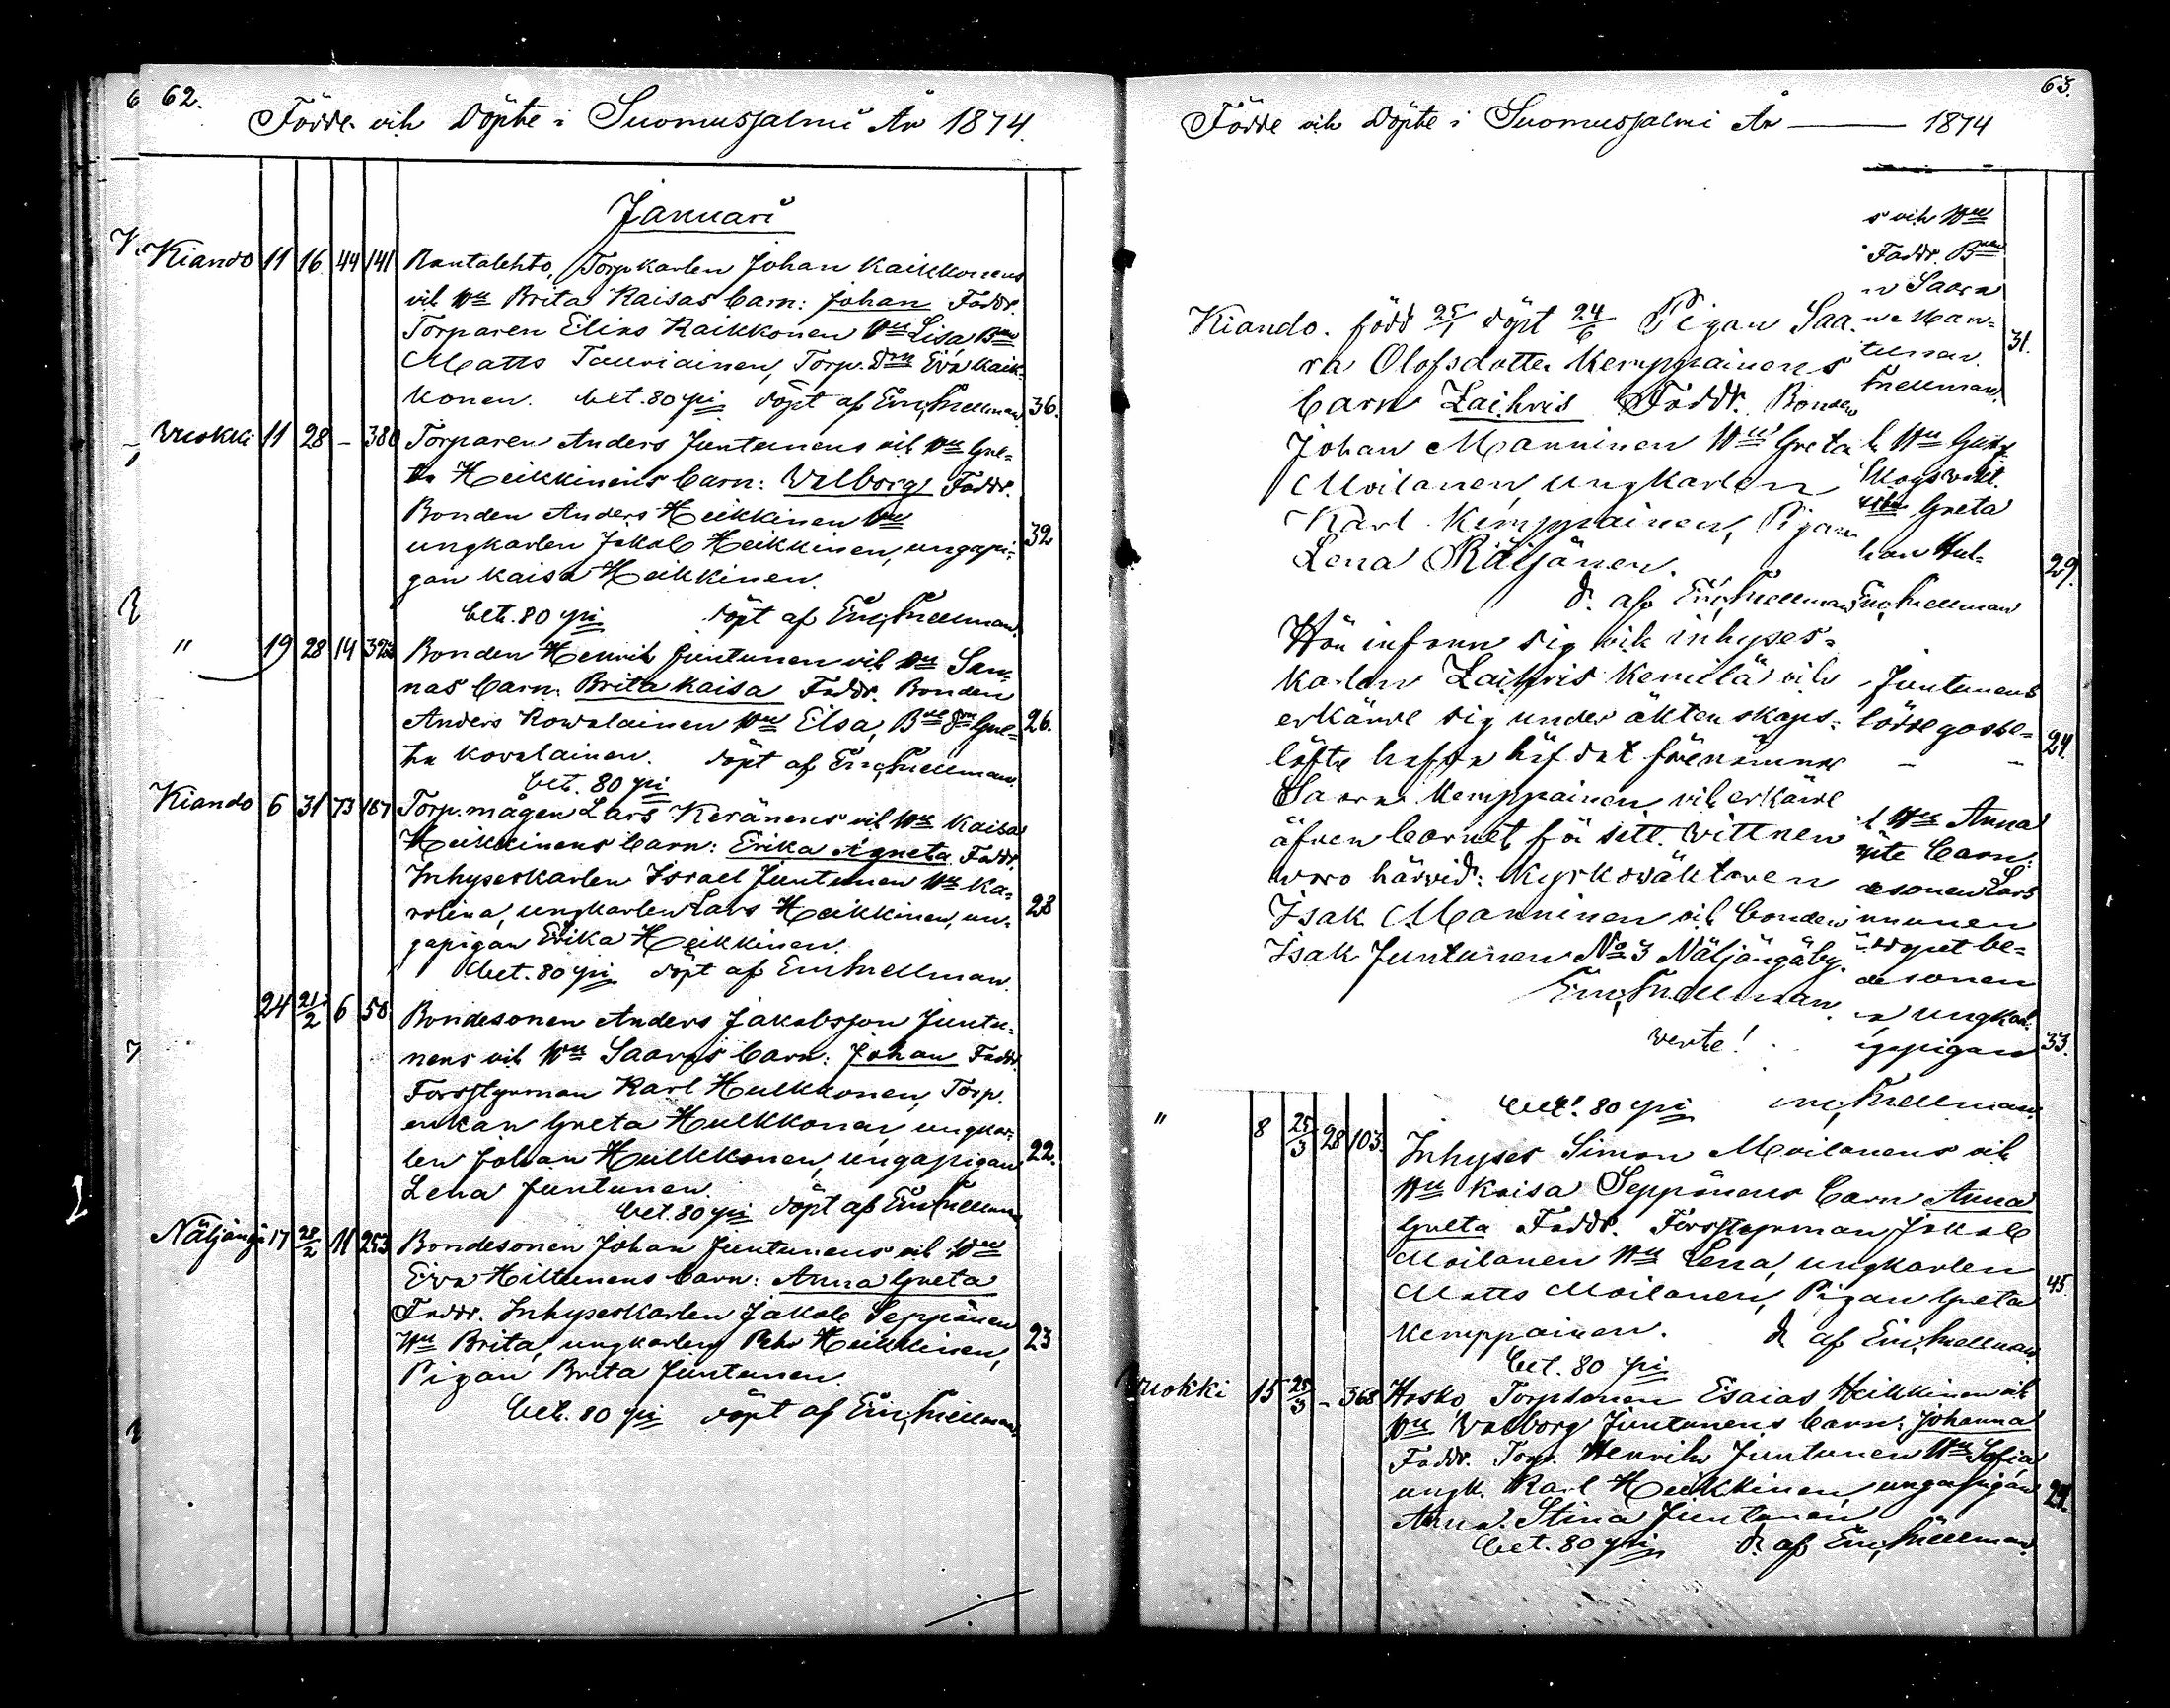 62.
Födde och Döpte i Suomusjalmi År 1874.
Januari
Kiando 11 16 44 141 Rantalehto, Torpkarlen Johan Kaikkonens
och Hu Brita Kaisas barn: Johan Faddr.
Torparen Elias Kaikkonen Hu Lisa Bon
Matts Tauriainen, Torp. Dtr Eva Kaik-
konen. bet. 80 pi döpt af Em. Snellman. 36.
Vuokki 11 28 - 380 Torparen Anders Juntunens och Hu Gre-
ta Heikkinens barn: Walborg Faddr.
Bonden Anders Heikkinen Hu
ungkarlen Jakob Heikkinen, ungapi- 32
gan Kaisa Heikkinen.
bet. 80 pi döpt af Em. Snellman.
" 19 28 14 Bonden Henrik Juntunen och Hu San-
nas barn: Brita Kaisa Faddr. Bonden
Anders Kowalainen Hu Elsa, Bde Dtr Gre- 26.
ta Kovalainen. döpt af Em. Snellman.
bet. 80 pi
Kiando 6 31 73 187 Torp.mågen Lars Keränens och Hu Kaisa
Heikkinens barn: Erika Agneta Faddr.
Inhyseskarlen Israel Juntunen Hu Ka-
rolina, ungkarlen Lars Heikkinen, un- 28
gapigan Erika Heikkinen.
bet. 80 pi döpt af Em. Snellman.
24 21/2 6 58 Bondesonen Anders Jakobsson Juntu-
nens och Hu Saaras barn: Johan Faddr.
Forsstyrman Karl Hulkkonen, Torp.
enkan Greta Hulkkonen, ungkar-
len Johan Hulkkonen, ungapigan 22.
Lena Juntunen.
bet. 80 pi döpt af Em. Snellman
Näljängä 17 28/2 11 253 Bondesonen Johan Juntunens och Hu
Eva Hiltunens barn: Anna Greta
Faddr. Inhyseskarlen Jakob Seppänen
Hu Brita, ungkarlen Pehr Heikkinen, 23
Pigan Brita Juntunen.
bet. 80 pi döpt af Em. Snellman.
63.
Födde och Döpte i Suomusjalmi År — 1874
Kiando. född 25/1 döpt 24/6 Pigan Saa-
ra Olofsdotter Kemppainens
barn Zaihris Faddr. Bonden
Johan Manninen Hu Greta
Moilanen, ungkarlen
Karl Kemppainen, Pigan
Lena Räisänen.
d. af Em. Snellman
Hän infann sig och inhyses-
karlen Zaihris Kemilä och
erkände sig under äktenskaps-
löfte hafva häfdat förenämnde
Saara Kemppainen och erkände
äfven barnet för sitt. Vittnen
voro härvid: Kyrkoväktaren
Isak Manninen och bonden
Isak Juntunen No 3 Näljängäby.
Em. Snellman.
verte!
s och Hu
Faddr. Bden
n Saara
ne Man-
telman
Snellman. 31.
h Hu Greta
Skogsvakt.
Greta
han Hul-
29.
Em. Snellman
Juntunens
24.
h Hu Anna
barn:
desonen Lars
nunen
döpet be-
desonen
n ungkarl.
gapigan 33.
bet. 80 pi Em. Snellman.
" 8 25/3 28 103. Inhyses Simon Moilanens och
Hu Kaisa Seppänens barn Anna
Greta Faddr. Forsstyrman Jakob
Moilanen Hu Lena, ungkarlen
Matts Moilanen, Pigan Greta 45.
Kemppainen. d. af Em. Snellman.
bet. 80 pi
Vuokki 15 25/3 - 368 Hosko, Torpsonen Esaias Heikkinen och
Hu Valborg Juntunens barn: Johanna
Faddr. Torp. Henrik Juntunen Hu Sofia
ungk. Karl Heikkinen, ungapigan
Anna Stina Juntunen
bet. 80 pi d. af Em. Snellman.